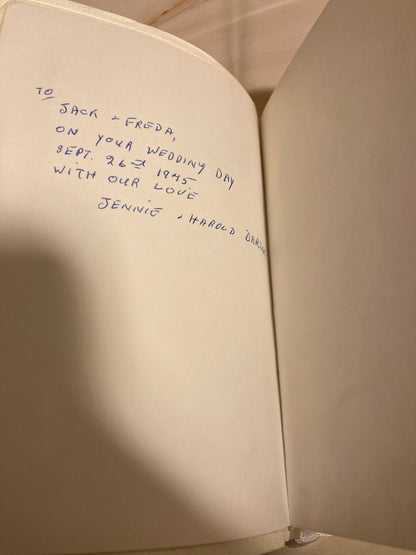 TO
JACK + FREDA,
ON YOUR WEDDING DAY
SEPT. 26th 1945
WITH OUR LOVE
JENNIE + HAROLD